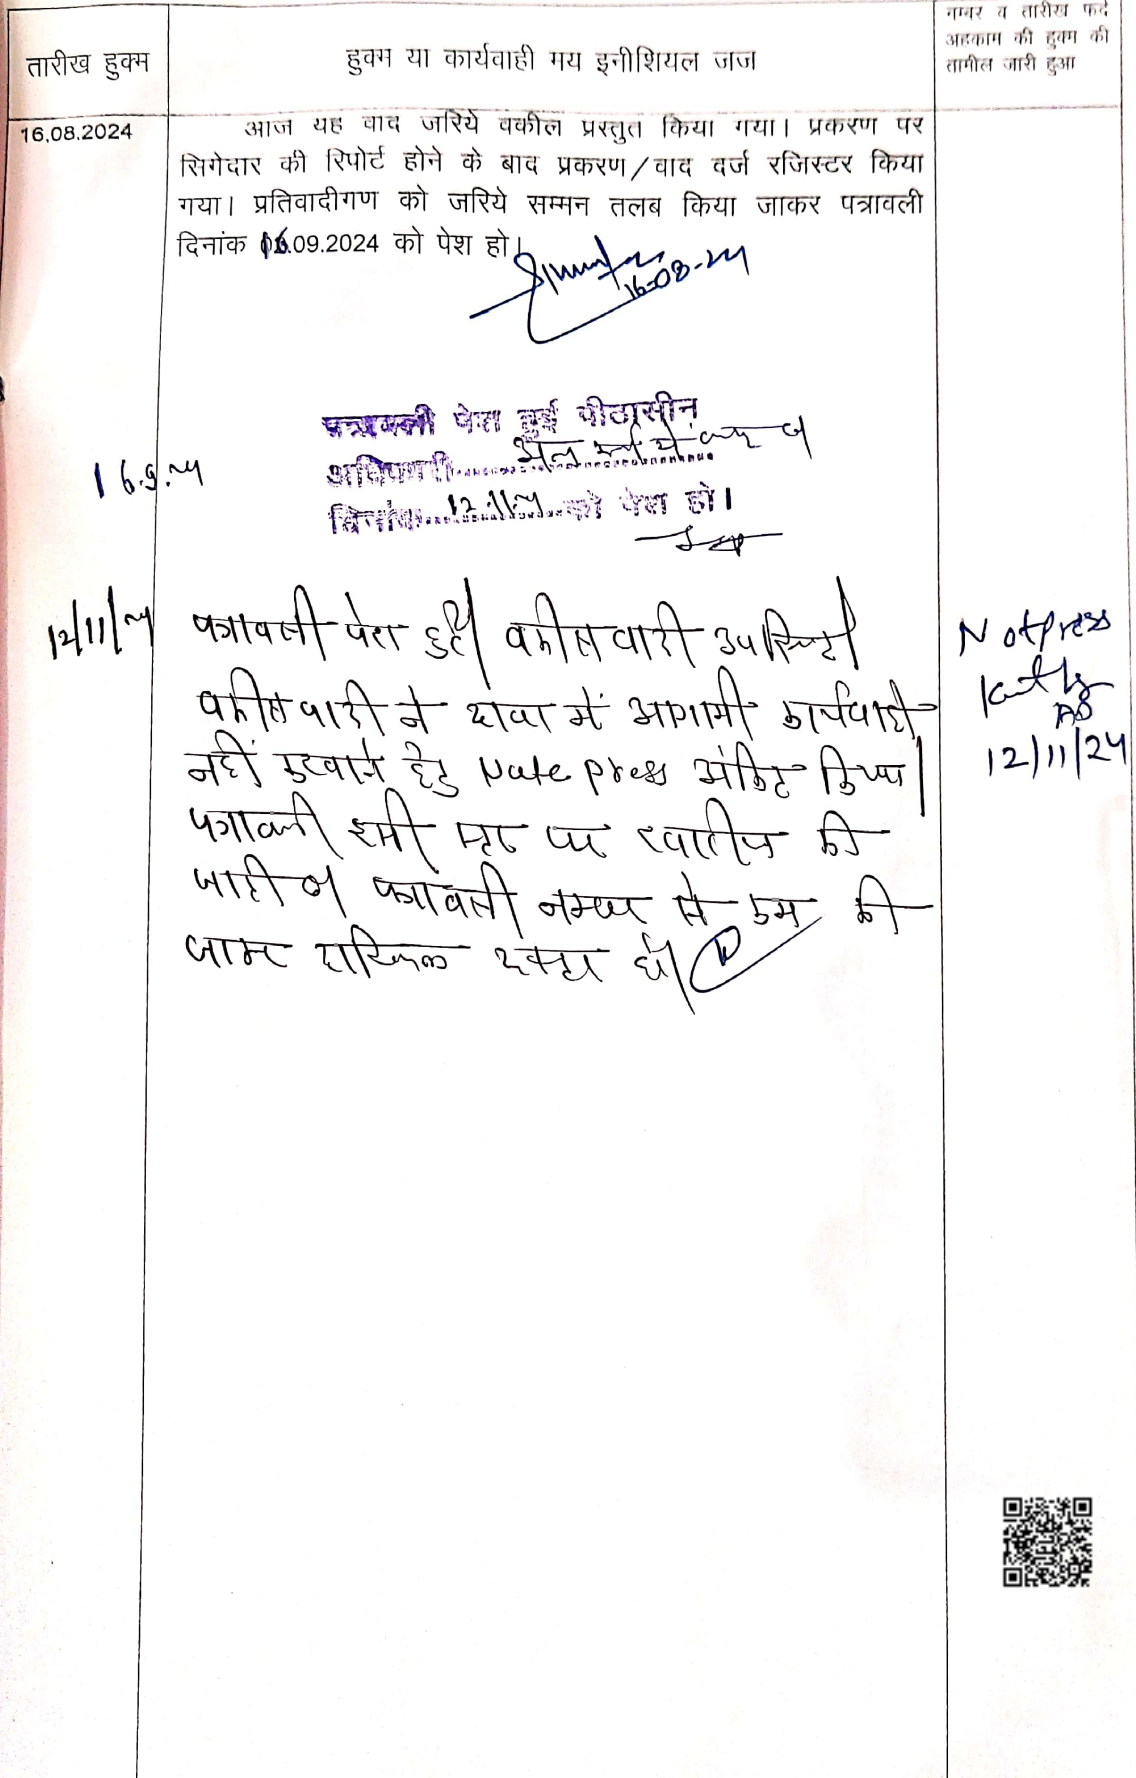 तारीख हुक्म
हुक्म या कार्यवाही मय इनीशियल जज
नम्बर व तारीख फर्द
अहकाम की हुक्म की
तामील जारी हुआ
16.08.2024
आज यह वाद जरिये वकील प्रस्तुत किया गया। प्रकरण पर
सिगेदार की रिपोर्ट होने के बाद प्रकरण/वाद दर्ज रजिस्टर किया
गया। प्रतिवादीगण को जरिये सम्मन तलब किया जाकर पत्रावली
दिनांक 16.09.2024 को पेश हो।
16-08-24
पत्रावली पेश हुई पीठासीन
16.9.24
अधिकारी अन्य कार्य में व्यस्त
दिनांक 12.11.24 को पेश हो।
12/11/24
पत्रावली पेश हुई। वकील वादी उपस्थित।
वकील वादी ने दावा में आगामी कार्यवाही
नहीं करवाने हेतु Note press अंकित किया।
पत्रावली इसी स्तर पर खारीज की
जाती व पत्रावली नम्बर से कम की
जाकर दाखिल दफ्तर हो।
Not press
12/11/24